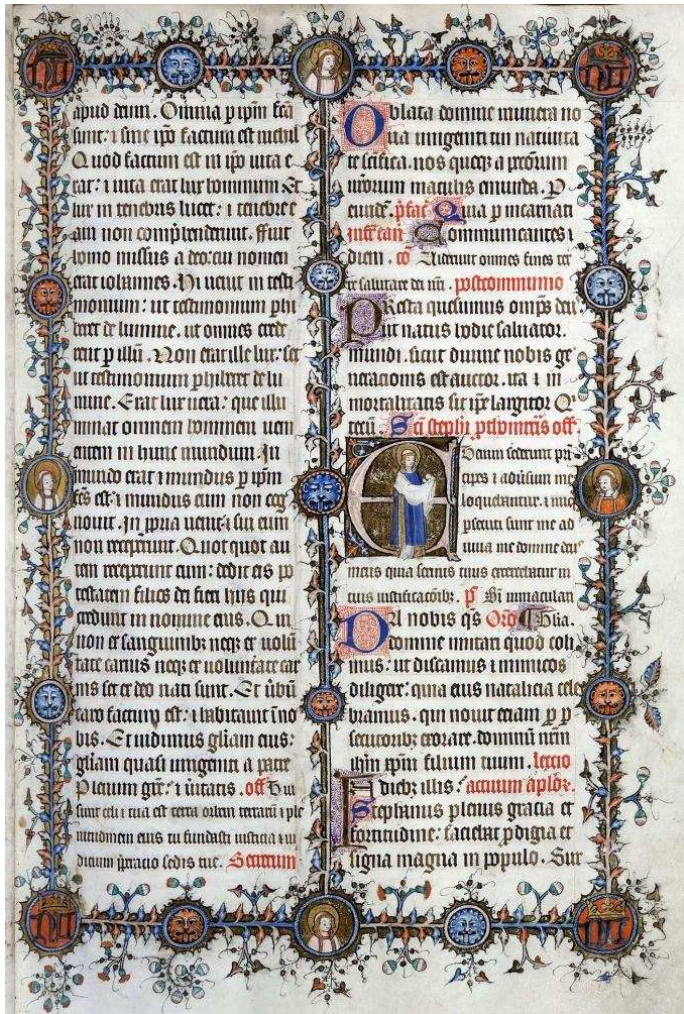 apud deum. Omnia p ipm fca
sunt: ⁊ sine ipo factum est nichil
Quod factum est in ipo uita e
rat: ⁊ uita erat lux hominum Et
lux in tenebris lucet: ⁊ tenebre e
am non comprehenderunt. ffuit
homo missus a deo: cui nomen
erat iohannes. Hic uenit in testi
monium: ut testimonium phi
beret de lumine. ut omnes crede
rent p illu. Non erat ille lux: set
ut testimonium phiberet de lu
mine. Erat lux uera: que illu
minat omnem hominem ueni
entem in hunc mundum. In
mundo erat ⁊ mundus p ipm
fcs est: ⁊ mundus eum non cog
nouit. In ppria uenit: ⁊ sui eum
non receperunt. Quot quot au
tem receperunt eum: dedit eis po
testatem filios dei fieri hiis qui
credunt in nomine eius. Qui
non ex sanguinibz neqz ex uolun
tate carnis neqz ex uoluntate uiri
set ex deo nati sunt. Et ubu
caro factum est: ⁊ habitauit i no
bis. Et uidimus gliam eius:
gliam quasi unigeniti a patre
Plenum gre: ⁊ ueritatis. off Tui
sunt celi ⁊ tua est terra orbem terraru ⁊ ple
nitudinem eius tu fundasti iusticia ⁊ iu
dicium pparacio sedis tue. Secretum
Oblata domine munera no
ua unigeniti tui natiuita
te scifica. nos queqz a pctorum
nrorum maculis emunda. P
eunde. pfac Quia p incarnati
infra can Communicantes ⁊
diem. co Viderunt omnes fines ter
re salutare dei nri. postcommunio
Presta quesumus omps deus
ut natus hodie saluator
mundi. sicut diuine nobis ge
neracionis est auctor. ita ⁊ in
mortalitatis sit ipe largitor Q
tecu. Sci stephi pthomris off
Etenim sederunt prin
cipes ⁊ aduersum me
loquebantur. ⁊ iniqi
psecuti sunt me ad
iuua me domine deus
meus quia seruus tuus exercebatur in
tuis iustificacoibz. ps Bi immaculati
Da nobis qs Oro Gloria.
domine imitari quod coli
mus: ut discamus ⁊ inimicos
diligere: quia eius natalicia cele
bramus. qui nouit eciam p p
secutoribz exorare. dominum nrm
ihm xpm filium tuum. leccio
In diebz illis: actuum aplor.
Stephanus plenus gracia et
fortitudine: faciebat pdigia et
signa magna in populo. Sur